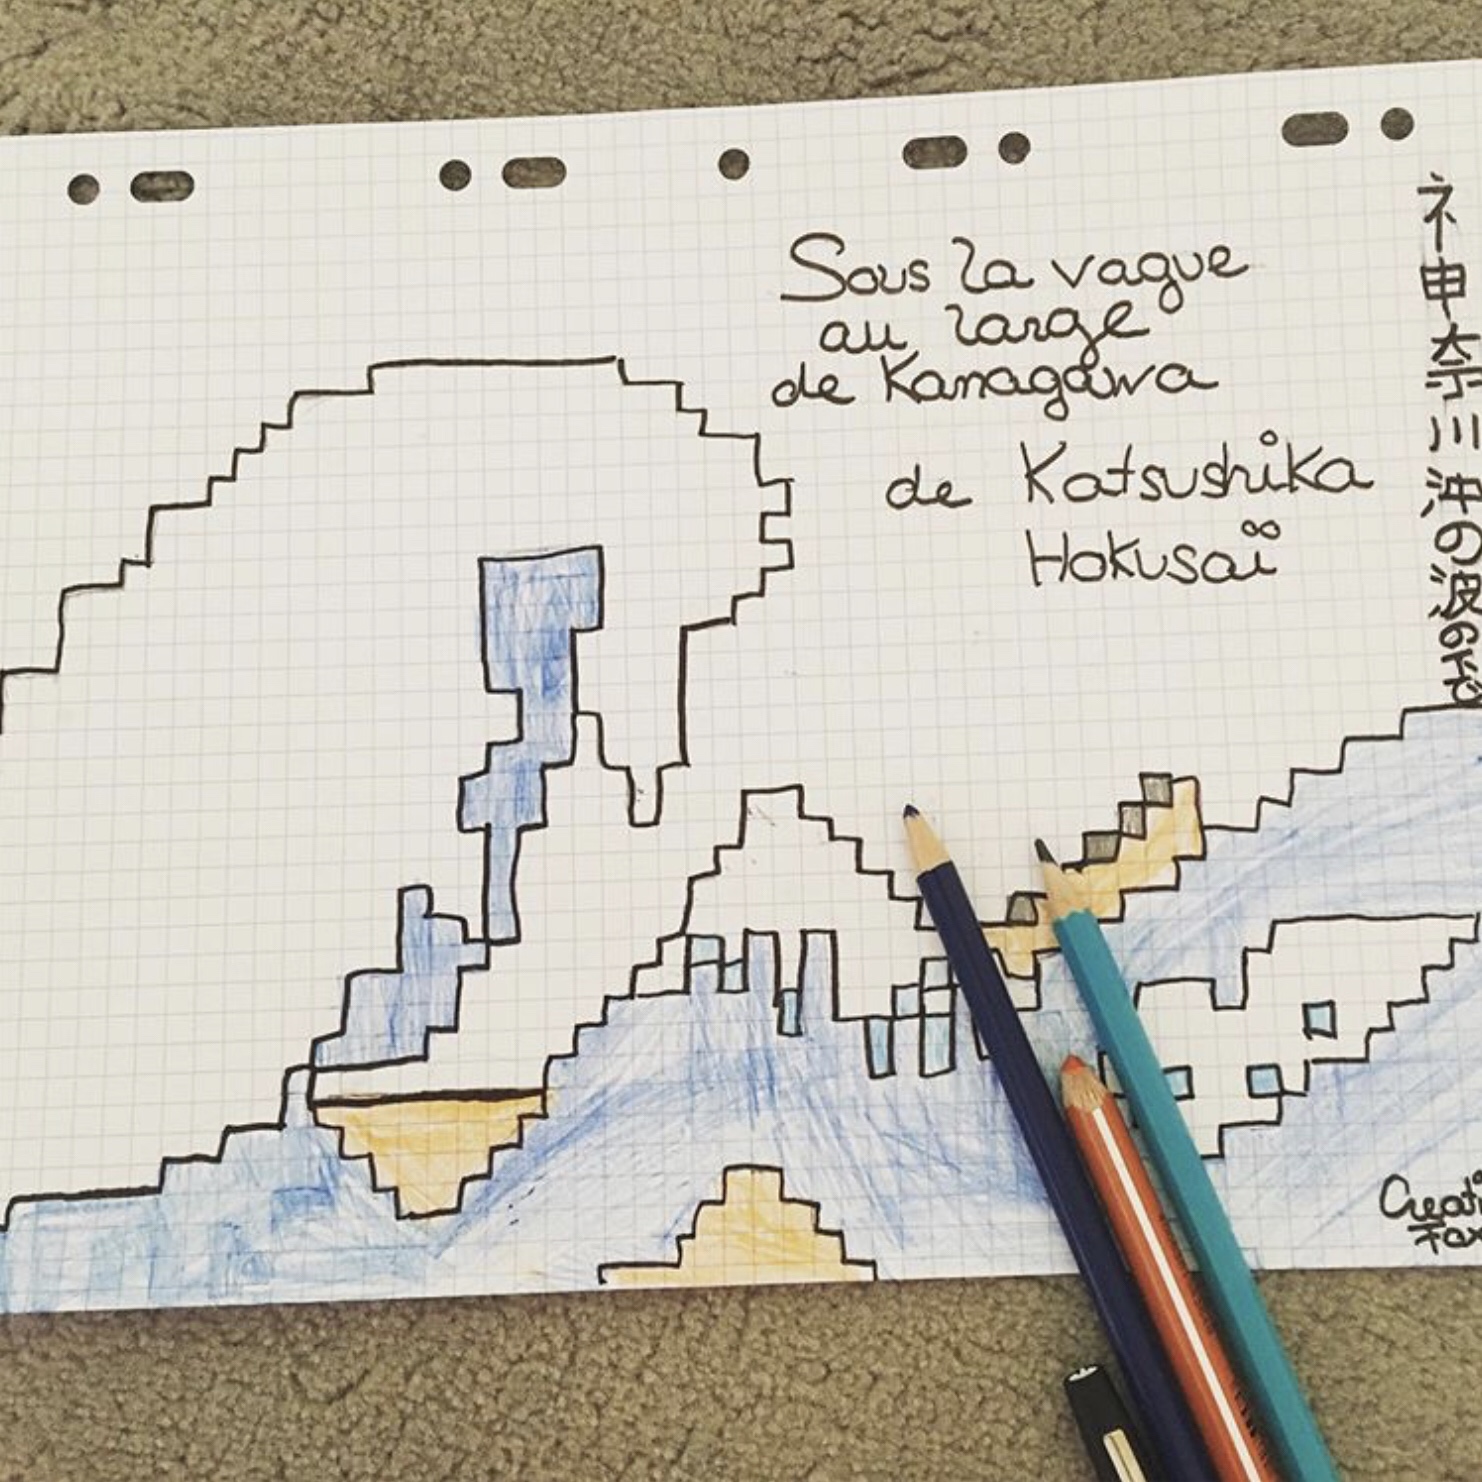 Sous la vague
au large
de Kanagawa
de Katsushika
Hokusaï
神奈川沖の波